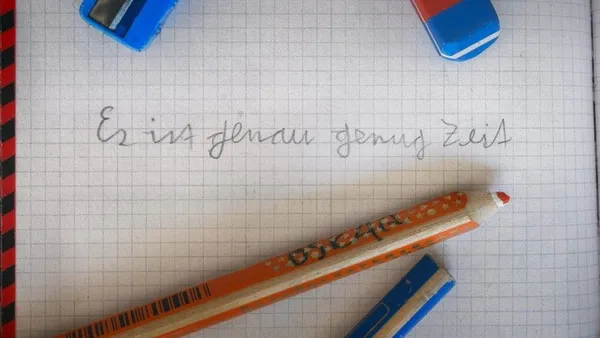 Es ist genau genug Zeit
OSCAR